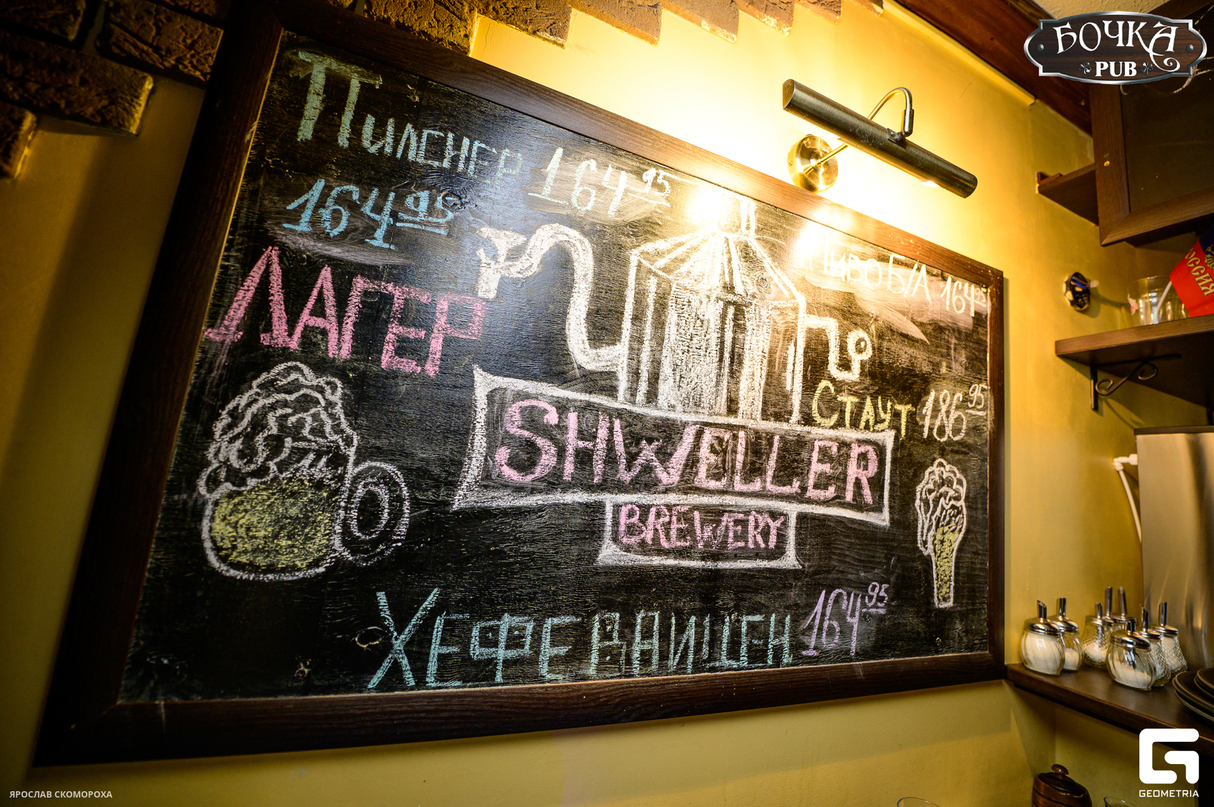 БОЧКА
PUB
Пилснер 164 95
164 95
ЛАГЕР
Пиво Б/А 164 95
СТАУТ 186 95
SHWELLER
BREWERY
ХЕФЕВАЙЦЕН 164 95
РОССИЯ
ЯРОСЛАВ СКОМОРОХА
GEOMETRIA